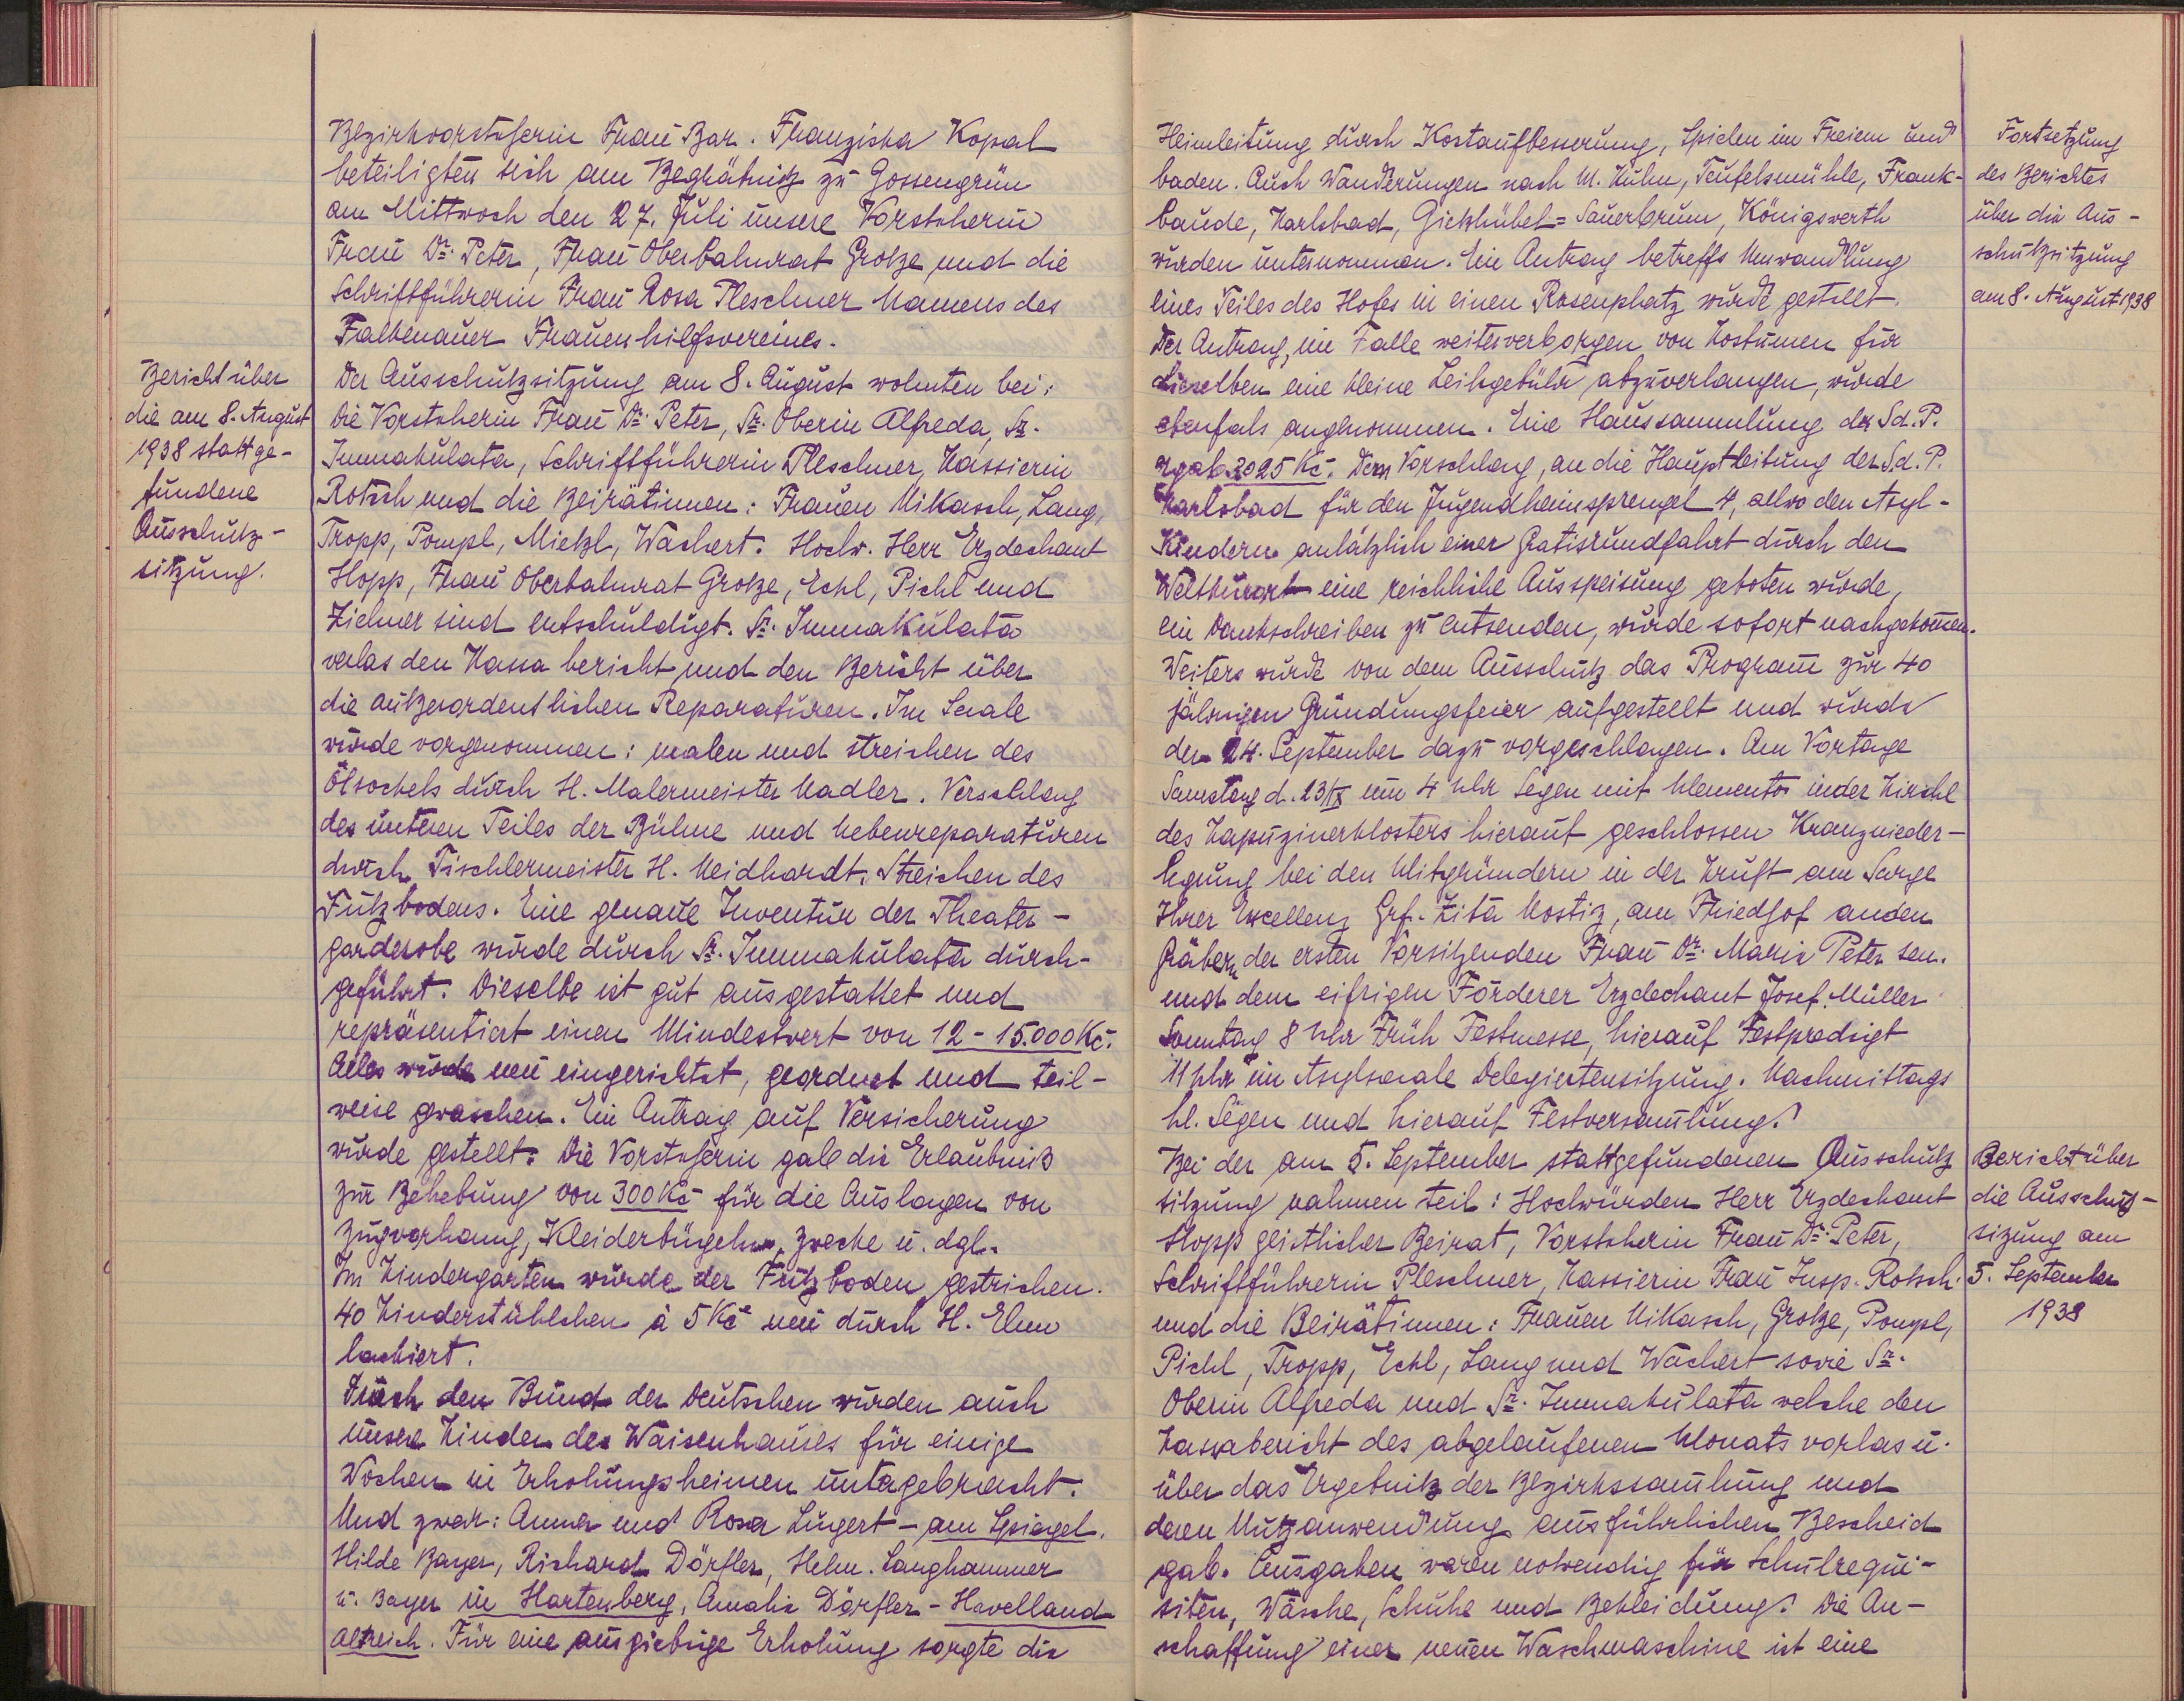 Bezirksvorsteherin Frau Bar. Franziska Kopal
beteiligten sich am Begräbnitz zu Gossengrün
am Mittwoch den 27. Juli unsere Vorsteherin
Frau Dr. Peter, Frau Oberbahnrat Grotze und die
Schriftführerin Frau Rosa Pleschner Namens des
Falkenauer Frauenhilfsvereines.
Bericht über
die am 8. August
1938 stattge-
fundene
Ausschutz-
sitzung.
Der Ausschutzsitzung am 8. August wohnten bei:
Die Vorsteherin Frau Dr. Peter, Sr. Oberin Alfreda, Sr.
Immakulata, Schriftführerin Pleschner, Kassierin
Rotsch und die Beirätinnen: Frauen Mikasch, Lang,
Tropp, Pompl, Mietzl, Wachert. Hochw. Herr Erzdechant
Hopp, Frau Oberbahnrat Grotze, Eckl, Pichl und
Ziehner sind entschuldigt. Sr. Immakulata
verlas den Kassa bericht und den Bericht über
die autzerordentlichen Reparaturen. Im Saale
wurde vorgenommen: malen und streichen des
Ölsockels durch H. Malermeister Nadler. Verschlag
des unteren Teiles der Bühne und Nebenreparaturen
durch Tischlermeister H. Neidhardt. Streichen des
Futzbodens. Eine genaue Inventur der Theater-
garderobe wurde durch Sr. Immakulata durch-
geführt. Dieselbe ist gut ausgestattet und
repräsentiert einen Mindestwert von 12 - 15.000 Kč.
Alles wurde neu eingerichtet, geordnet und teil-
weise gewaschen. Ein Antrag auf Versicherung
wurde gestellt. Die Vorsteherin gab die Erlaubniß
zur Behebung von 300 Kč für die Auslagen von
Zugvorhang, Kleiderbügeln, Zwecke u. dgl.
Im Kindergarten wurde der Futzboden gestrichen.
40 Kinderstühlchen à 5 Kč neu durch H. Elm
lackiert.
Durch den Bund der Deutschen wurden auch
unsere Kinder des Waisenhauses für einige
Wochen in Erholungsheimen untergebracht.
Und zwar: Anna und Rosa Lugert - am Spiegel.
Hilde Bayer, Richard Dörfler, Helm. Langhammer
u. Bayer in Hartenberg, Amalie Dörfler - Havelland
Altreich. Für eine ausgiebige Erholung sorgte die
Heimleitung durch Kostaufbesserung, Spielen im Freiem und
baden. Auch Wanderungen nach M. Kulm, Teufelsmühle, Frank-
baude, Karlsbad, Giekhübel=Sauerbrunn, Königswerth
wurden unternommen. Ein Antrag betreffs Umwandlung
eines Teiles des Hofes in einen Rosenplatz wurde gestellt.
Der Antrag, im Falle weiterverborgen von Kostümen für
dieselben eine kleine Leihgebühr abzuverlangen, wurde
ebenfals angenommen. Eine Haussammlung der Sd. P.
ergab 3025 Kč. Dem Vorschlag, an die Hauptleitung der S.d. P.
Karlsbad für den Jugendheimsprengel 4, allwo den Asyl-
Kindern anlätzlich einer Gratisrundfahrt durch den
Weltkurort eine reichliche Ausspeisung geboten wurde,
ein Dankschreiben zu entsenden, wurde sofort nachgekommen.
Weiters wurde von dem Ausschutz das Programm zur 40
jährigen Gründungsfeier aufgestellt und wurde
der 24. September dazu vorgeschlagen. Am Vortage
Samstag d. 23/IX um 4 Uhr Segen mit Memento in der Kirche
des Kapuzinerklosters hierauf geschlossen Kranznieder-
legung bei den Mitgründern in der Kruft am Sarge
Ihrer Excellenz Grf. Zita Nostiz, am Friedhof an den
Gräbern der ersten Vorsitzenden Frau Dr. Marie Peter sen.
und dem eifrigen Förderer Erzdechant Josef Müller
Sonntag 8 Uhr Früh Festmesse, hierauf Festpredigt
11 Uhr im Asylsaale Delegiertensitzung. Nachmittags
hl. Segen und hierauf Festversammlung.
Bei der am 5. September stattgefundenen Ausschutz
sitzung nahmen teil: Hochwürden Herr Erzdechant
Hopp geistlicher Beirat, Vorsteherin Frau Dr. Peter,
Schriftführerin Pleschner, Kassierin Frau Insp. Rotsch.
und die Beirätinnen: Frauen Mikasch, Grotze, Pompl,
Pichl, Tropp, Eckl, Lang und Wachert sowie Sr.
Oberin Alfreda und Sr. Immakulata welche den
Kassabericht des abgelaufenen Monats vorlas u.
über das Ergebnitz der Bezirkssammlung und
deren Nutzanwendung ausführlichen Bescheid
gab. Ausgaben waren notwendig für Schulrequi-
siten, Wäsche, Schuhe und Bekleidung. Die An-
schaffung einer neuen Waschmaschine ist eine
Fortsetzung
des Berichtes
über die Aus-
schutzsitzung
am 8. August 1938
Bericht über
die Ausschutz-
sizung am
5. September
1938